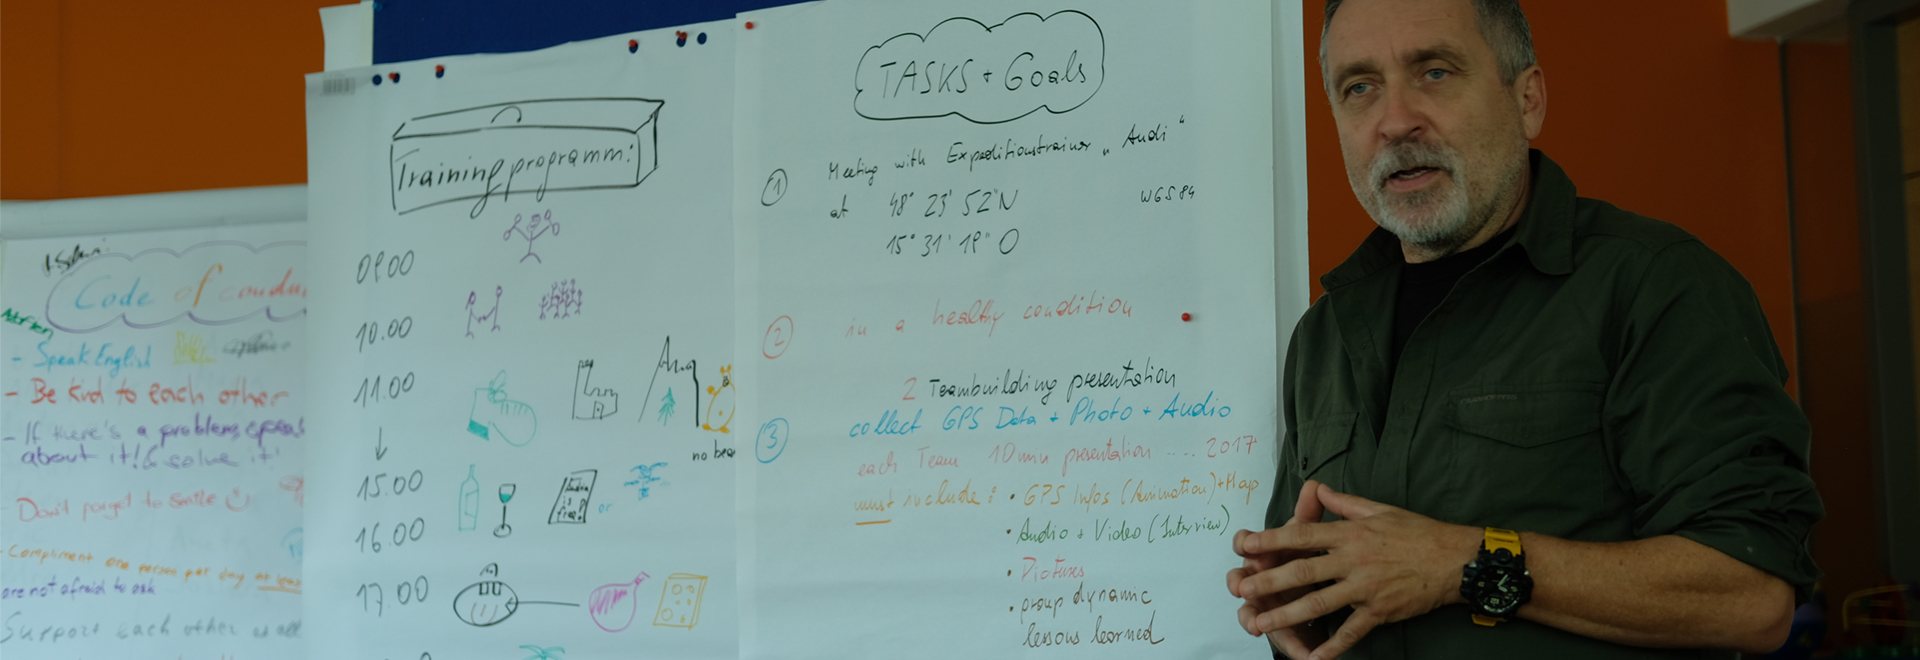 Code of
- Speak English
- Be kind to each other
- If there's a problem, speak
about it! & solve it!
- Don't forget to smile
- Compliment one person per day
are not afraid to ask
Support each other
Training programm:
09.00
10.00
11.00
no bear
15.00
or
16.00
17.00
TASKS + Goals
① Meeting with Expeditionstrainer „Audi“
at 48° 23' 52"N WGS84
15° 31' 19" O
② in a healthy condition
2 Teambuilding presentation
③ collect GPS Data + Photo + Audio
each Team 10min presentation .... 2017
must include: • GPS Infos (Animation) + Map
• Audio + Video (Interview)
• Pictures
• group dynamic
lessons learned